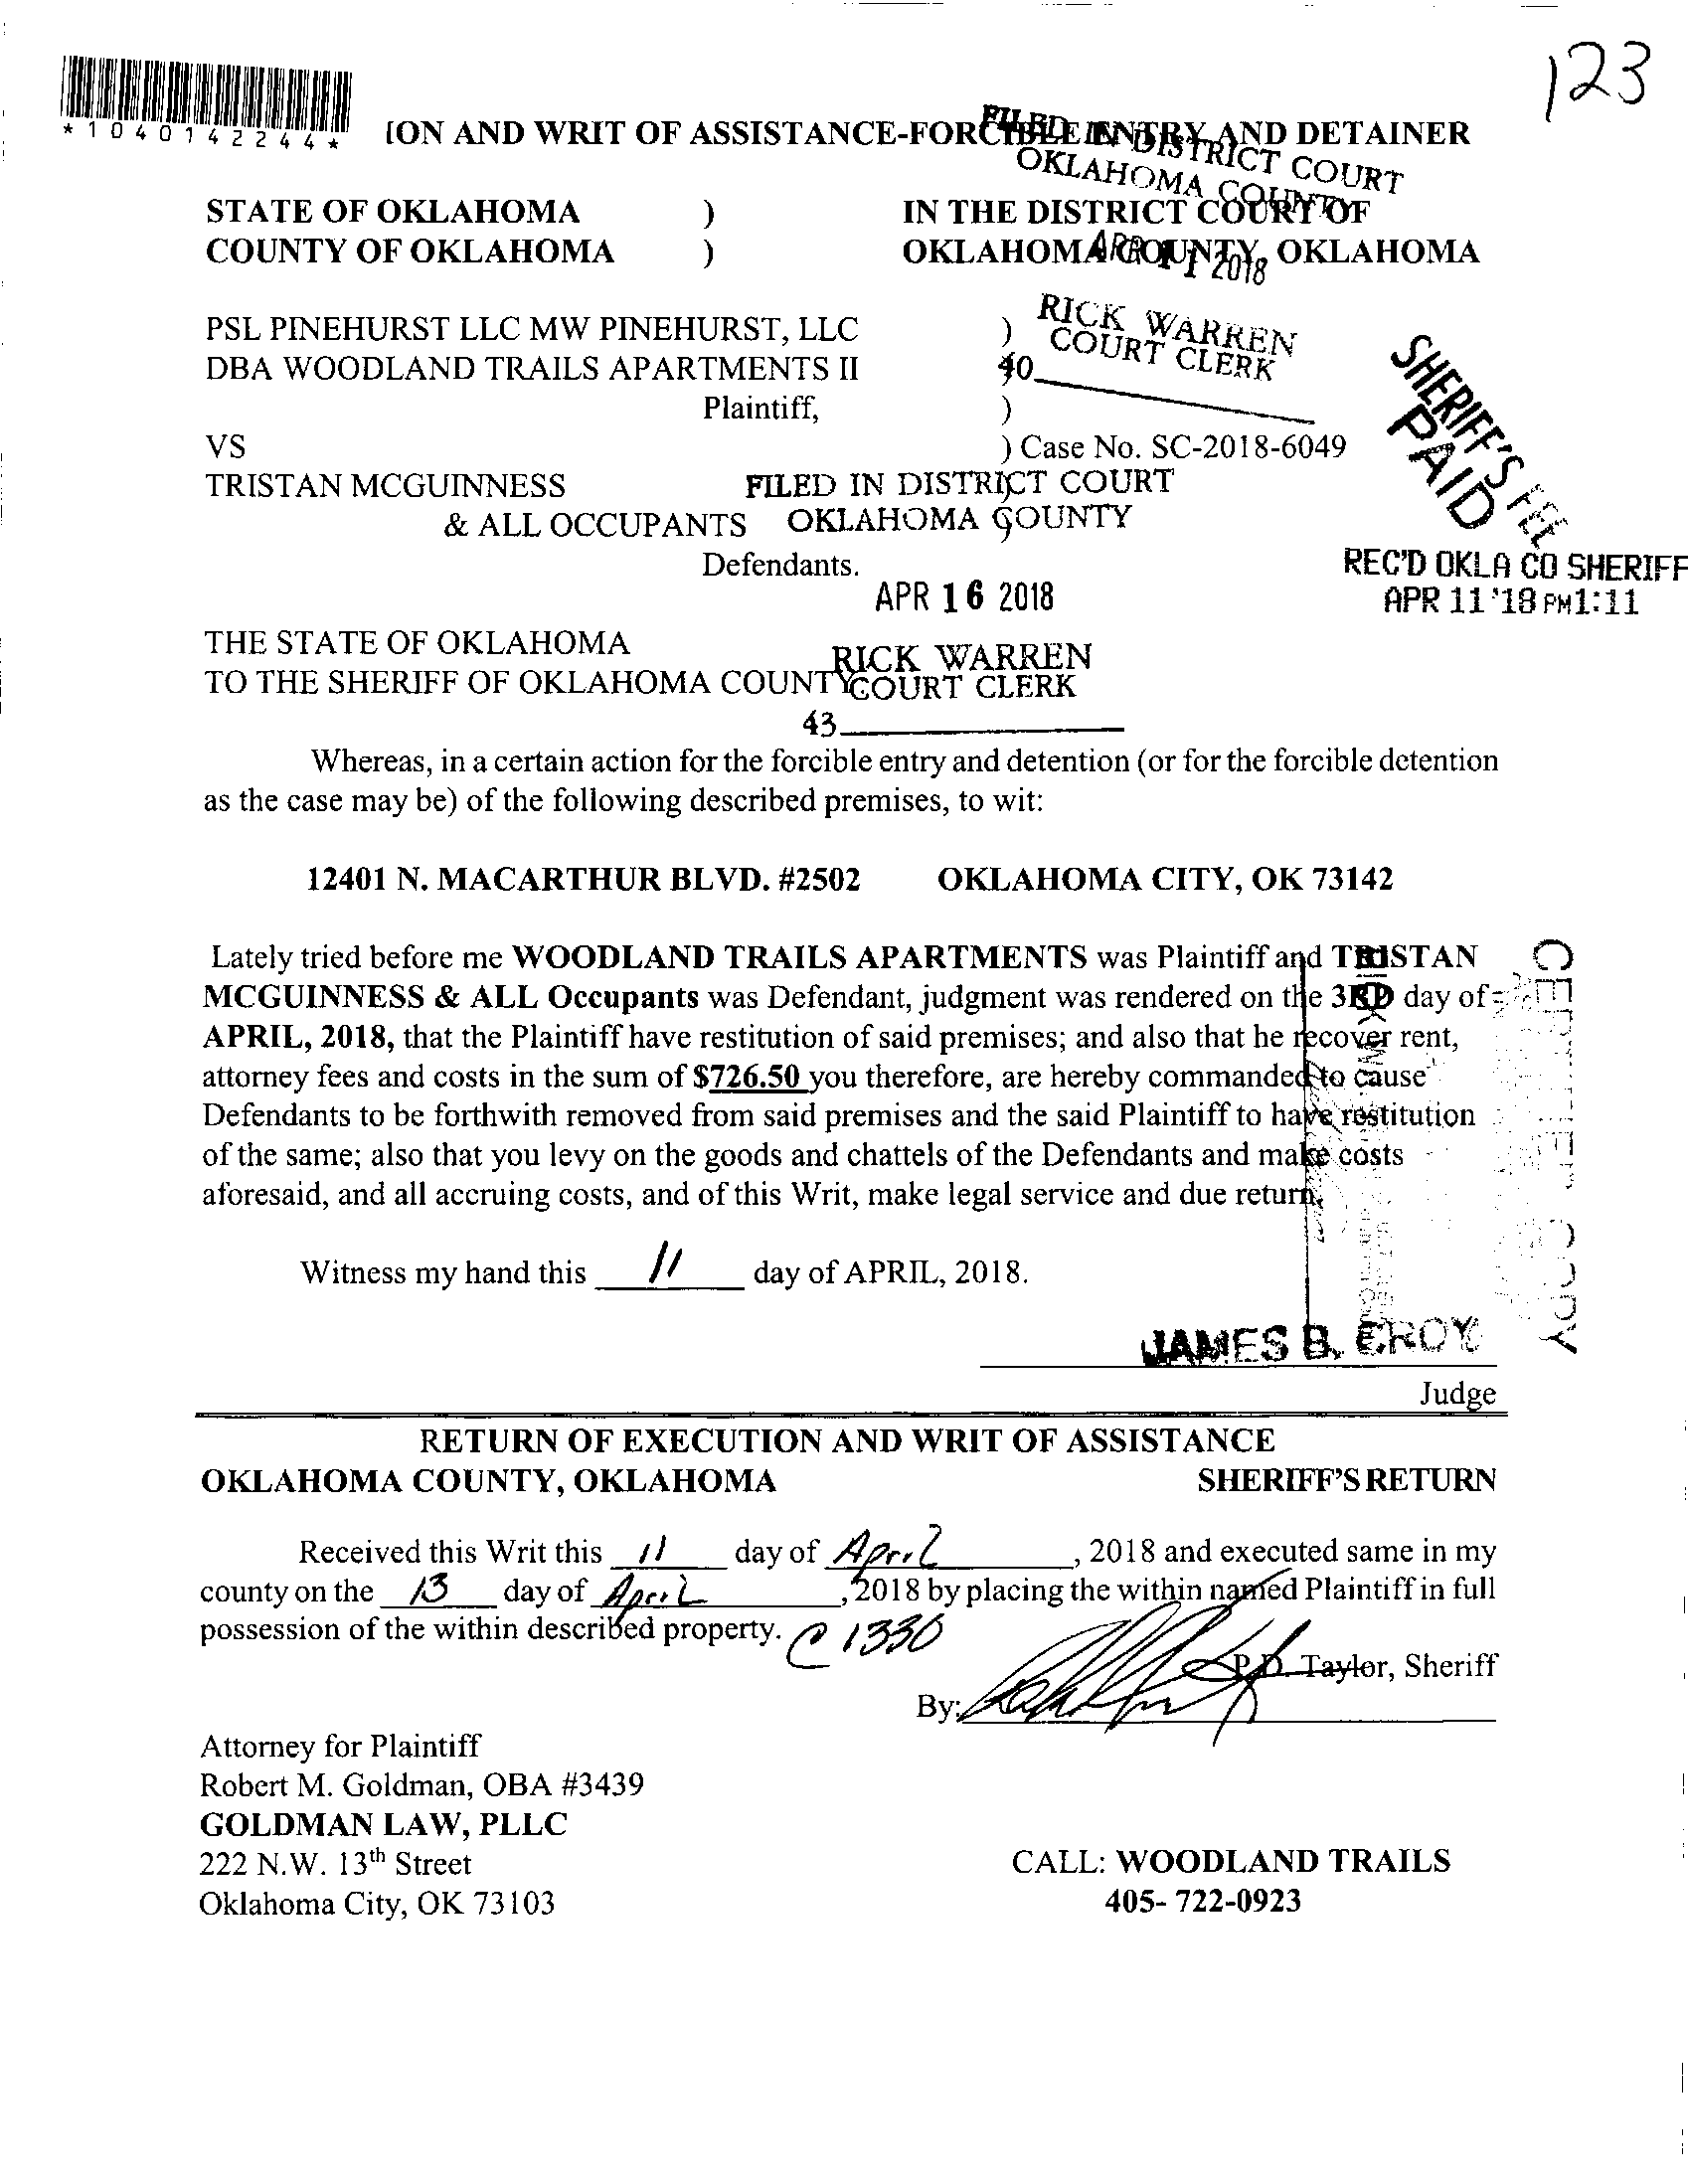 123
*1040142244*
ION AND WRIT OF ASSISTANCE-FORCIBLE ENTRY AND DETAINER
FILED IN DISTRICT COURT
OKLAHOMA COUNTY
STATE OF OKLAHOMA ) IN THE DISTRICT COURT OF
COUNTY OF OKLAHOMA ) OKLAHOMA COUNTY, OKLAHOMA
APR 11 2018
PSL PINEHURST LLC MW PINEHURST, LLC )
RICK WARREN
COURT CLERK
DBA WOODLAND TRAILS APARTMENTS II )
40
Plaintiff, )
SHERIFF'S FEE
PAID
VS ) Case No. SC-2018-6049
TRISTAN MCGUINNESS )
FILED IN DISTRICT COURT
& ALL OCCUPANTS )
OKLAHOMA COUNTY
Defendants.
REC'D OKLA CO SHERIFF
APR 16 2018
APR 11 '18 PM1:11
THE STATE OF OKLAHOMA
RICK WARREN
TO THE SHERIFF OF OKLAHOMA COUNTY
COURT CLERK
43
Whereas, in a certain action for the forcible entry and detention (or for the forcible detention
as the case may be) of the following described premises, to wit:
12401 N. MACARTHUR BLVD. #2502 OKLAHOMA CITY, OK 73142
Lately tried before me WOODLAND TRAILS APARTMENTS was Plaintiff and TRISTAN
MCGUINNESS & ALL Occupants was Defendant, judgment was rendered on the 3RD day of
APRIL, 2018, that the Plaintiff have restitution of said premises; and also that he recover rent,
attorney fees and costs in the sum of $726.50 you therefore, are hereby commanded to cause
Defendants to be forthwith removed from said premises and the said Plaintiff to have restitution
of the same; also that you levy on the goods and chattels of the Defendants and make costs
aforesaid, and all accruing costs, and of this Writ, make legal service and due return.
CERTIFIED COPY
Witness my hand this 11 day of APRIL, 2018.
JAMES B. CROY
Judge
RETURN OF EXECUTION AND WRIT OF ASSISTANCE
OKLAHOMA COUNTY, OKLAHOMA SHERIFF'S RETURN
Received this Writ this 11 day of April, 2018 and executed same in my
county on the 13 day of April, 2018 by placing the within named Plaintiff in full
possession of the within described property. @ 1330
P.D. Taylor, Sheriff
By:
Attorney for Plaintiff
Robert M. Goldman, OBA #3439
GOLDMAN LAW, PLLC
222 N.W. 13th Street
Oklahoma City, OK 73103
CALL: WOODLAND TRAILS
405- 722-0923